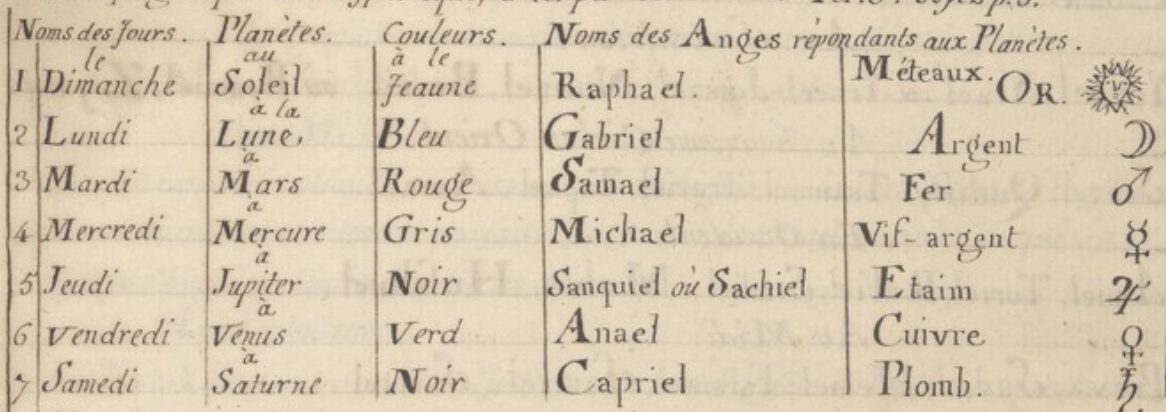 Noms des Jours. Planètes. Couleurs. Noms des Anges répondants aux Planètes.
le au à le Méteaux.
1 Dimanche Soleil Jeaune Raphael. OR.
à la
2 Lundi Lune Bleu Gabriel Argent
à
3 Mardi Mars Rouge Samael Fer
à
4 Mercredi Mercure Gris Michael Vif-argent
à
5 Jeudi Jupiter Noir Sanquiel où Sachiel Etaim
à
6 Vendredi Vénus Verd Anael Cuivre
à
7 Samedi Saturne Noir Capriel Plomb.